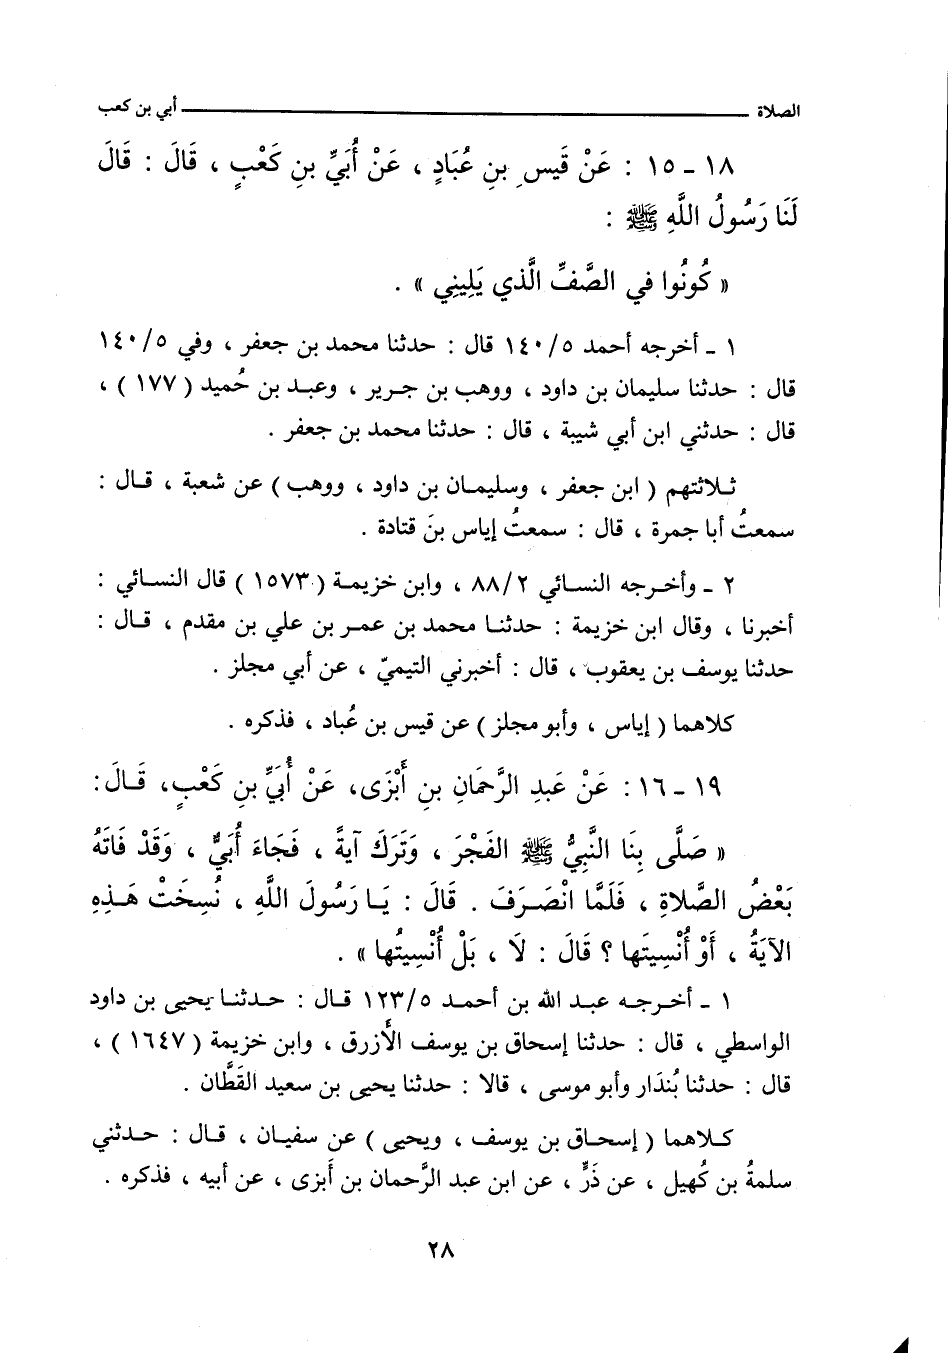 الصلاة ــــــــ أبي بن كعب
١٨ ـ ١٥ : عَنْ قَيسِ بنِ عُبَادٍ ، عَنْ أُبَيِّ بنِ كَعْبٍ ، قَالَ : قَالَ
لَنَا رَسُولُ اللَّهِ ﷺ :
« كُونُوا في الصَّفِّ الَّذي يَلِيني » .
١ ـ أخرجه أحمد ١٤٠/٥ قال : حدثنا محمد بن جعفر ، وفي ١٤٠/٥
قال : حدثنا سليمان بن داود ، ووهب بن جرير ، وعبد بن حُميد ( ١٧٧ ) ،
قال : حدثني ابن أبي شيبة ، قال : حدثنا محمد بن جعفر .
ثلاثتهم ( ابن جعفر ، وسليمان بن داود ، ووهب ) عن شعبة ، قال :
سمعتُ أبا جمرة ، قال : سمعتُ إياس بنَ قتادة .
٢ ـ وأخرجه النسائي ٨٨/٢ ، وابن خزيمة ( ١٥٧٣ ) قال النسائي :
أخبرنا ، وقال ابن خزيمة : حدثنا محمد بن عمر بن علي بن مقدم ، قال :
حدثنا يوسف بن يعقوب ، قال : أخبرني التيميّ ، عن أبي مجلز .
كلاهما ( إياس ، وأبو مجلز ) عن قيس بن عُباد ، فذكره .
١٩ ـ ١٦ : عَنْ عَبدِ الرَّحمَانِ بنِ أَبْزَى، عَنْ أُبَيِّ بنِ كَعْبٍ، قَالَ:
« صَلَّى بِنَا النَّبِيُّ ﷺ الفَجْرَ ، وَتَرَكَ آيةً ، فَجَاءَ أُبَيٌّ ، وَقَدْ فَاتَهُ
بَعْضُ الصَّلاةِ ، فَلَمَّا انْصَرَفَ . قَالَ : يَا رَسُولَ اللَّهِ ، نُسِخَتْ هَذِهِ
الآيَةُ ، أَوْ أُنْسِيتَها ؟ قَالَ : لَا ، بَلْ أُنْسِيتُها » .
١ ـ أخرجه عبد الله بن أحمد ١٢٣/٥ قال : حدثنا يحيى بن داود
الواسطي ، قال : حدثنا إسحاق بن يوسف الأزرق ، وابن خزيمة ( ١٦٤٧ ) ،
قال : حدثنا بُندَار وأبو موسى ، قالا : حدثنا يحيى بن سعيد القَطَّان .
كلاهما ( إسحاق بن يوسف ، ويحيى ) عن سفيان ، قال : حدثني
سلمةُ بن كُهيل ، عن ذَرٍّ ، عن ابن عبد الرَّحمان بن أَبزى ، عن أبيه ، فذكره .
٢٨